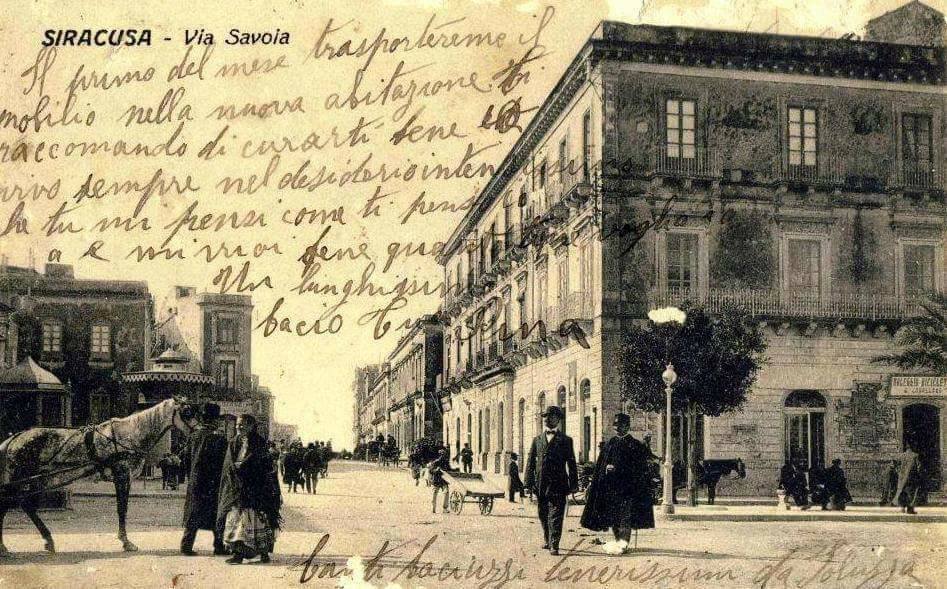 SIRACUSA - Via Savoia
Il primo del mese trasporteremo il
mobilio nella nuova abitazione. Ti
raccomando di curarti bene e
sempre nel desiderio intenso
che tu mi pensi come ti penso
a e mi vuoi bene quanto
Un lunghissimo
bacio tua Pina
NOLEGGIO BICICLETTE
tanti baciuzzi tenerissimi da